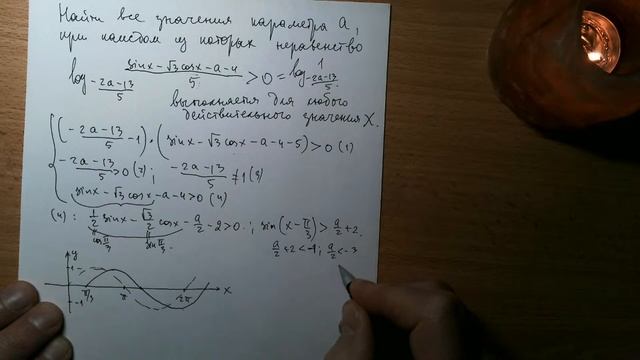 Найти все значения параметра a,
при каждом из которых неравенство
log_{(-2a-13)/5} (sinx-√3cosx-a-4)/5 > 0 = log_{(-2a-13)/5} 1
выполняется для любого
действительного значения X.
((-2a-13)/5 -1)·(sinx-√3cosx-a-4-5)>0 (1)
(-2a-13)/5>0 (2); (-2a-13)/5≠1(3)
sinx-√3cosx-a-4>0 (4)
(4): 1/2 sinx-√3/2 cosx-a/2-2>0.; sin(x-π/3)>a/2+2.
cosπ/3 sinπ/3. a/2+2<-1; a/2<-3
y
1
π/3 π 2π x
-1